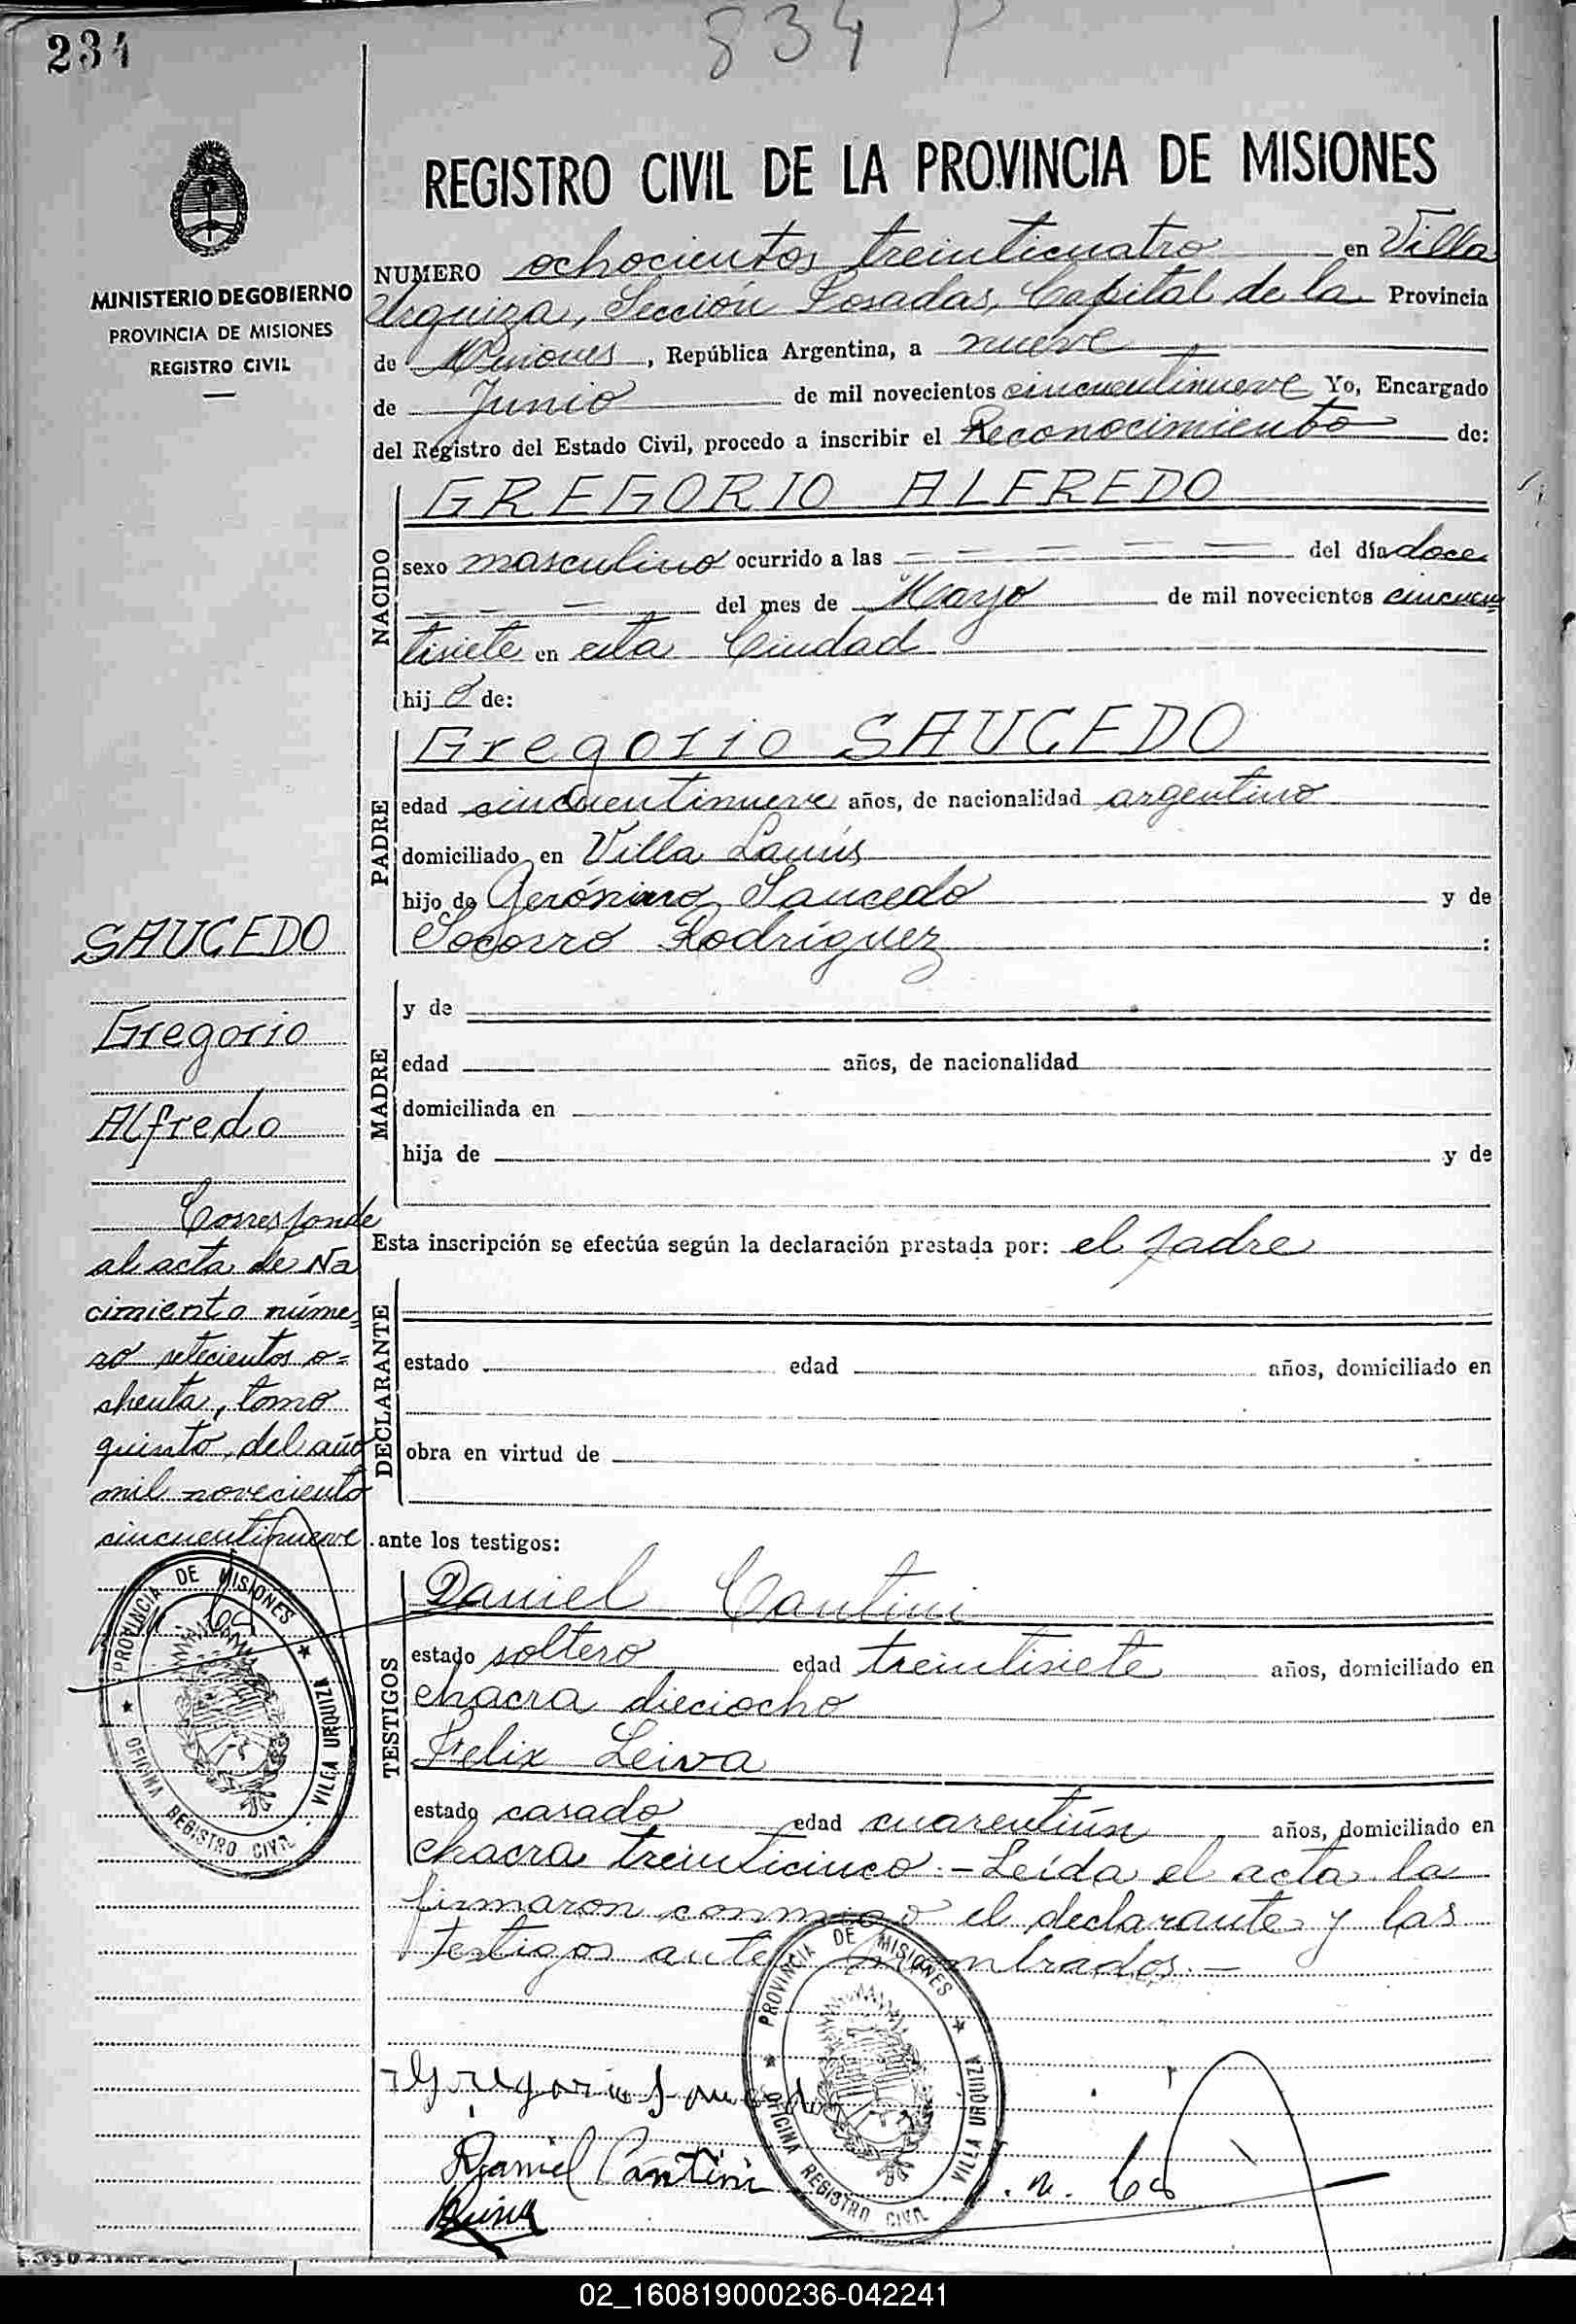 234
834 P
REGISTRO CIVIL DE LA PROVINCIA DE MISIONES
MINISTERIO DE GOBIERNO
PROVINCIA DE MISIONES
REGISTRO CIVIL
NUMERO ochocientos treinticuatro en Villa
Urquiza, Sección Posadas, Capital de la Provincia
de Misiones, República Argentina, a nueve
de Junio de mil novecientos cincuentinueve Yo, Encargado
del Registro del Estado Civil, procedo a inscribir el Reconocimiento de:
NACIDO
GREGORIO ALFREDO
sexo masculino ocurrido a las — — — — — del día doce
— — — del mes de Mayo de mil novecientos cincuen=
tisiete en esta Ciudad
hijo de:
PADRE
Gregorio SAUCEDO
edad cincuentinueve años, de nacionalidad argentino
domiciliado en Villa Lanús
hijo de Gerónimo Saucedo y de
Socorro Rodríguez :
MADRE
y de
edad años, de nacionalidad
domiciliada en
hija de y de
Esta inscripción se efectúa según la declaración prestada por: el padre
DECLARANTE
estado edad años, domiciliado en
obra en virtud de
ante los testigos:
TESTIGOS
Daniel Cantini
estado soltero edad treintisiete años, domiciliado en
chacra dieciocho
Felix Leiva
estado casado edad cuarentiún años, domiciliado en
chacra treinticinco.- Leída el acta la
firmaron conmigo el declarante y los
testigos antes nombrados.-
SAUCEDO
Gregorio
Alfredo
Corresponde
al acta de Na
cimiento núme=
ro setecientos o=
chenta, tomo
quinto, del año
mil noveciento
cincuentinueve.
PROVINCIA DE MISIONES
OFICINA REGISTRO CIVIL
VILLA URQUIZA
Gregorio Saucedo
PROVINCIA DE MISIONES
OFICINA REGISTRO CIVIL
VILLA URQUIZA
Daniel Cantini
02_160819000236-042241